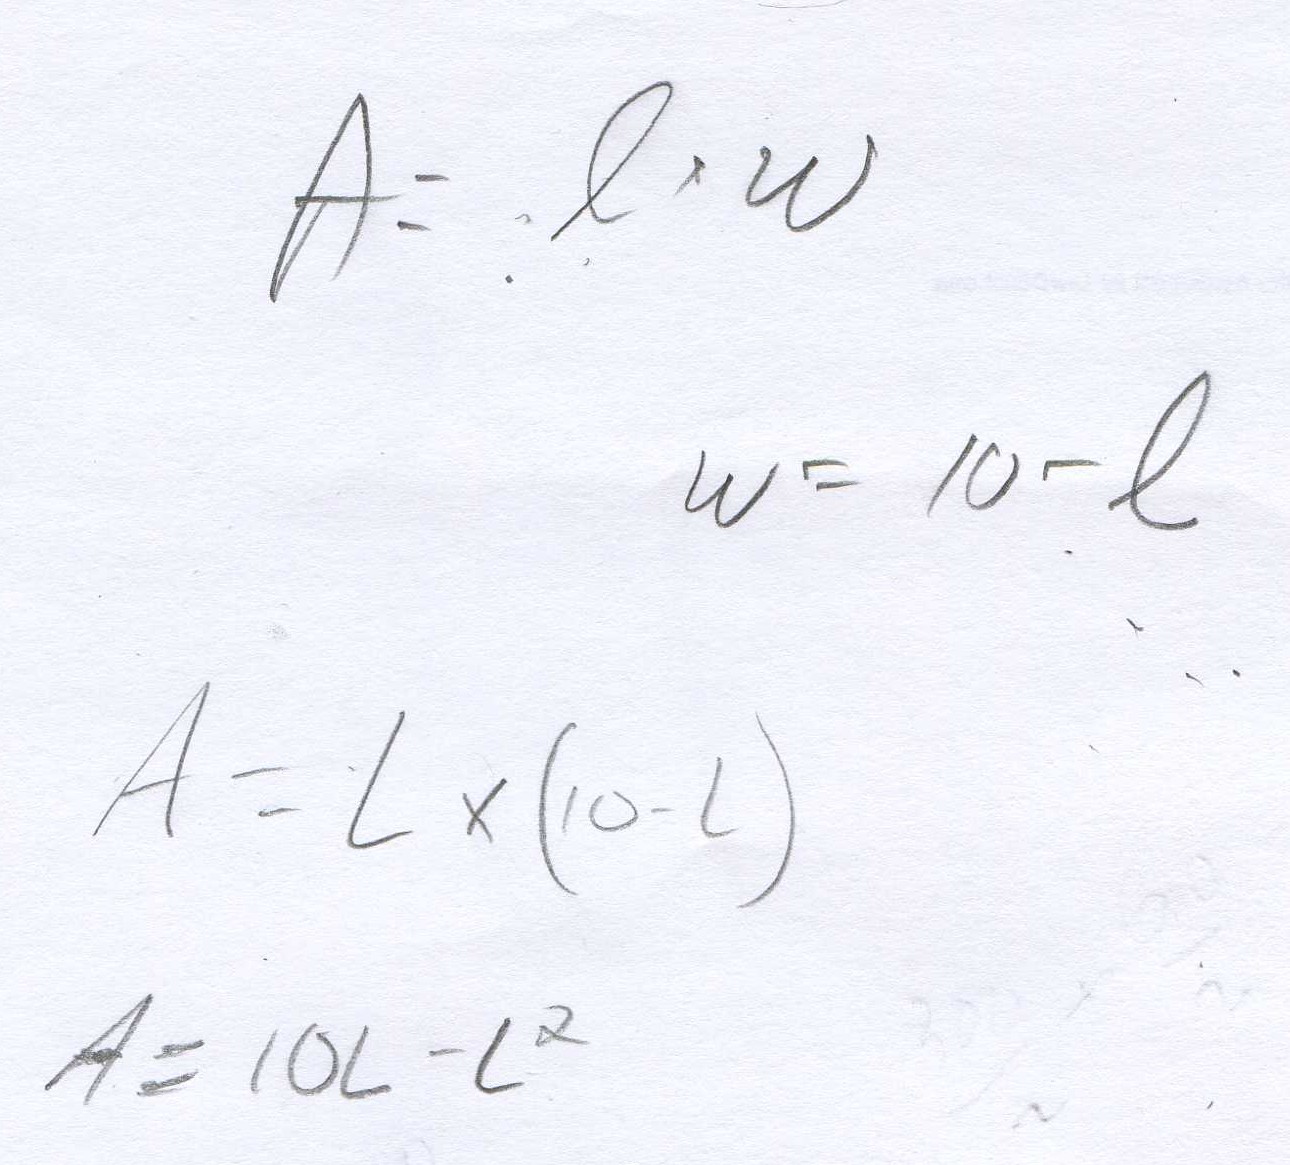 A = l × w
w = 10 - l
A = L × (10 - L)
A = 10L - L²